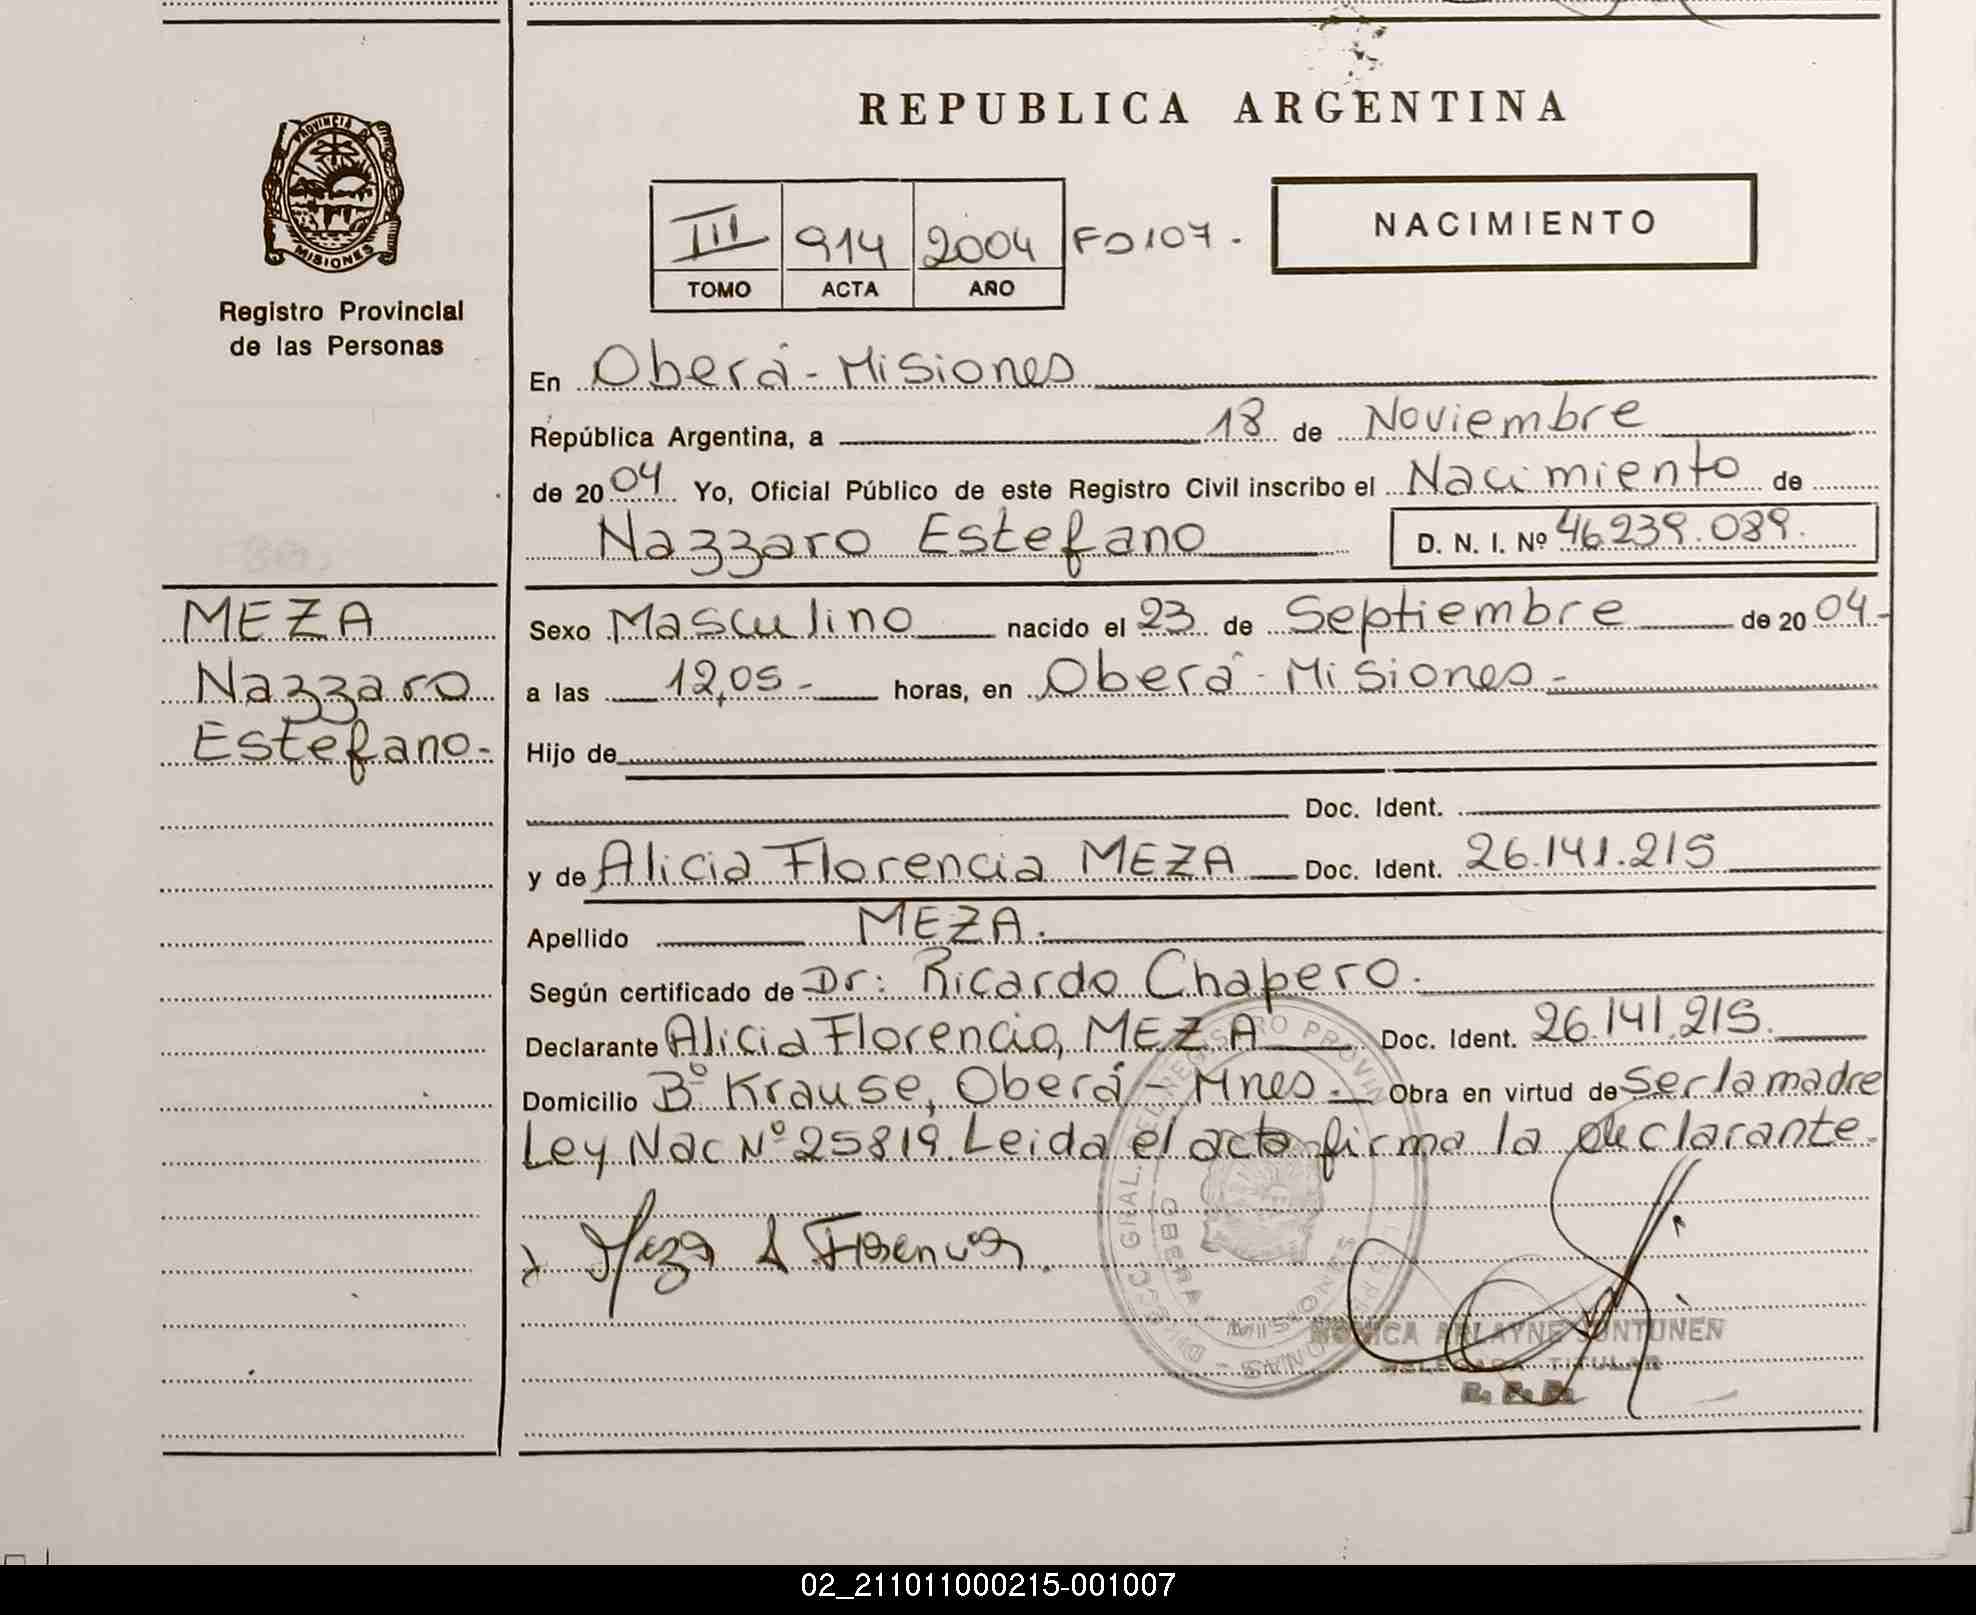 REPUBLICA ARGENTINA
PROVINCIA DE
MISIONES
Registro Provincial
de las Personas
III 914 2004 Fo 107.
TOMO ACTA AÑO
NACIMIENTO
En Oberá - Misiones
República Argentina, a 18 de Noviembre
de 2004 Yo, Oficial Público de este Registro Civil inscribo el Nacimiento de
Nazzaro Estefano D. N. I. Nº 46.239.089.
MEZA
Nazzaro
Estefano.-
Sexo Masculino nacido el 23 de Septiembre de 2004.-
a las 12,05 - horas, en Oberá - Misiones -
Hijo de
Doc. Ident.
y de Alicia Florencia MEZA Doc. Ident. 26.141.215
Apellido MEZA.
Según certificado de Dr: Ricardo Chapero.
Declarante Alicia Florencia, MEZA Doc. Ident. 26.141.215.
Domicilio Bº Krause, Oberá - Mnes. Obra en virtud de ser la madre
Ley Nac Nº 25819. Leida el acta firma la declarante.
Meza A Florencia.
OBERA - MISIONES
MONICA ARLAYNE SUNTUNEN
DELEGADA TITULAR
R. P. P.
02_211011000215-001007